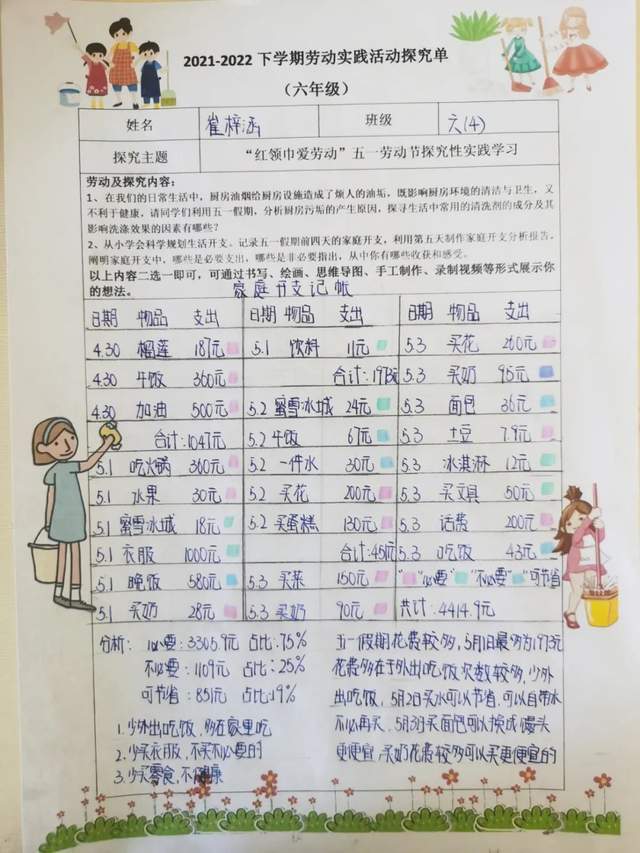 2021-2022 下学期劳动实践活动探究单
（六年级）
姓名 崔梓涵 班级 六(4)
探究主题 “红领巾爱劳动”五一劳动节探究性实践学习
劳动及探究内容：
1、在我们的日常生活中，厨房油烟给厨房设施造成了烦人的油垢，既影响厨房环境的清洁与卫生，又
不利于健康，请同学们利用五一假期，分析厨房污垢的产生原因，探寻生活中常用的清洗剂的成分及其
影响洗涤效果的因素有哪些？
2、从小学会科学规划生活开支。记录五一假期前四天的家庭开支，利用第五天制作家庭开支分析报告，
阐明家庭开支中，哪些是必要支出，哪些是非必要指出，从中你有哪些收获和感受。
以上内容二选一即可，可通过书写、绘画、思维导图、手工制作、录制视频等形式展示你
的想法。
家庭开支记帐
日期 物品 支出 日期 物品 支出 日期 物品 支出
4.30 榴莲 187元 5.1 饮料 11元 5.3 买花 260元
4.30 午饭 360元 合计:1973元 5.3 买奶 95元
4.30 加油 500元 5.2 蜜雪冰城 24元 5.3 面包 36元
合计:1047元 5.2 午饭 67元 5.3 土豆 7.9元
5.1 吃火锅 360元 5.2 一件水 30元 5.3 冰淇淋 12元
5.1 水果 30元 5.2 买花 200元 5.3 买文具 50元
5.1 蜜雪冰城 18元 5.2 买蛋糕 130元 5.3 话费 200元
5.1 衣服 1000元 合计:451元 5.3 吃饭 43元
5.1 晚饭 580元 5.3 买菜 150元 “ ”必要“ ”不必要“ ”可节省
5.1 买奶 28元 5.3 买奶 90元 共计:4414.9元
分析： 必要：3305.9元 占比:75%
不必要：1109元 占比:25%
可节省：851元 占比:19%
1.少外出吃饭，多在家里吃
2.少买衣服，不买不必要的
3.少买零食,不健康
五一假期花费较多，5月1日最多为1973元
花费多在于外出吃饭次数较多,少外
出吃饭，5月2日买水可以节省,可以自带水
不必再买，5月3日买面包可以换成馒头
更便宜,买奶花费较多可以买更便宜的